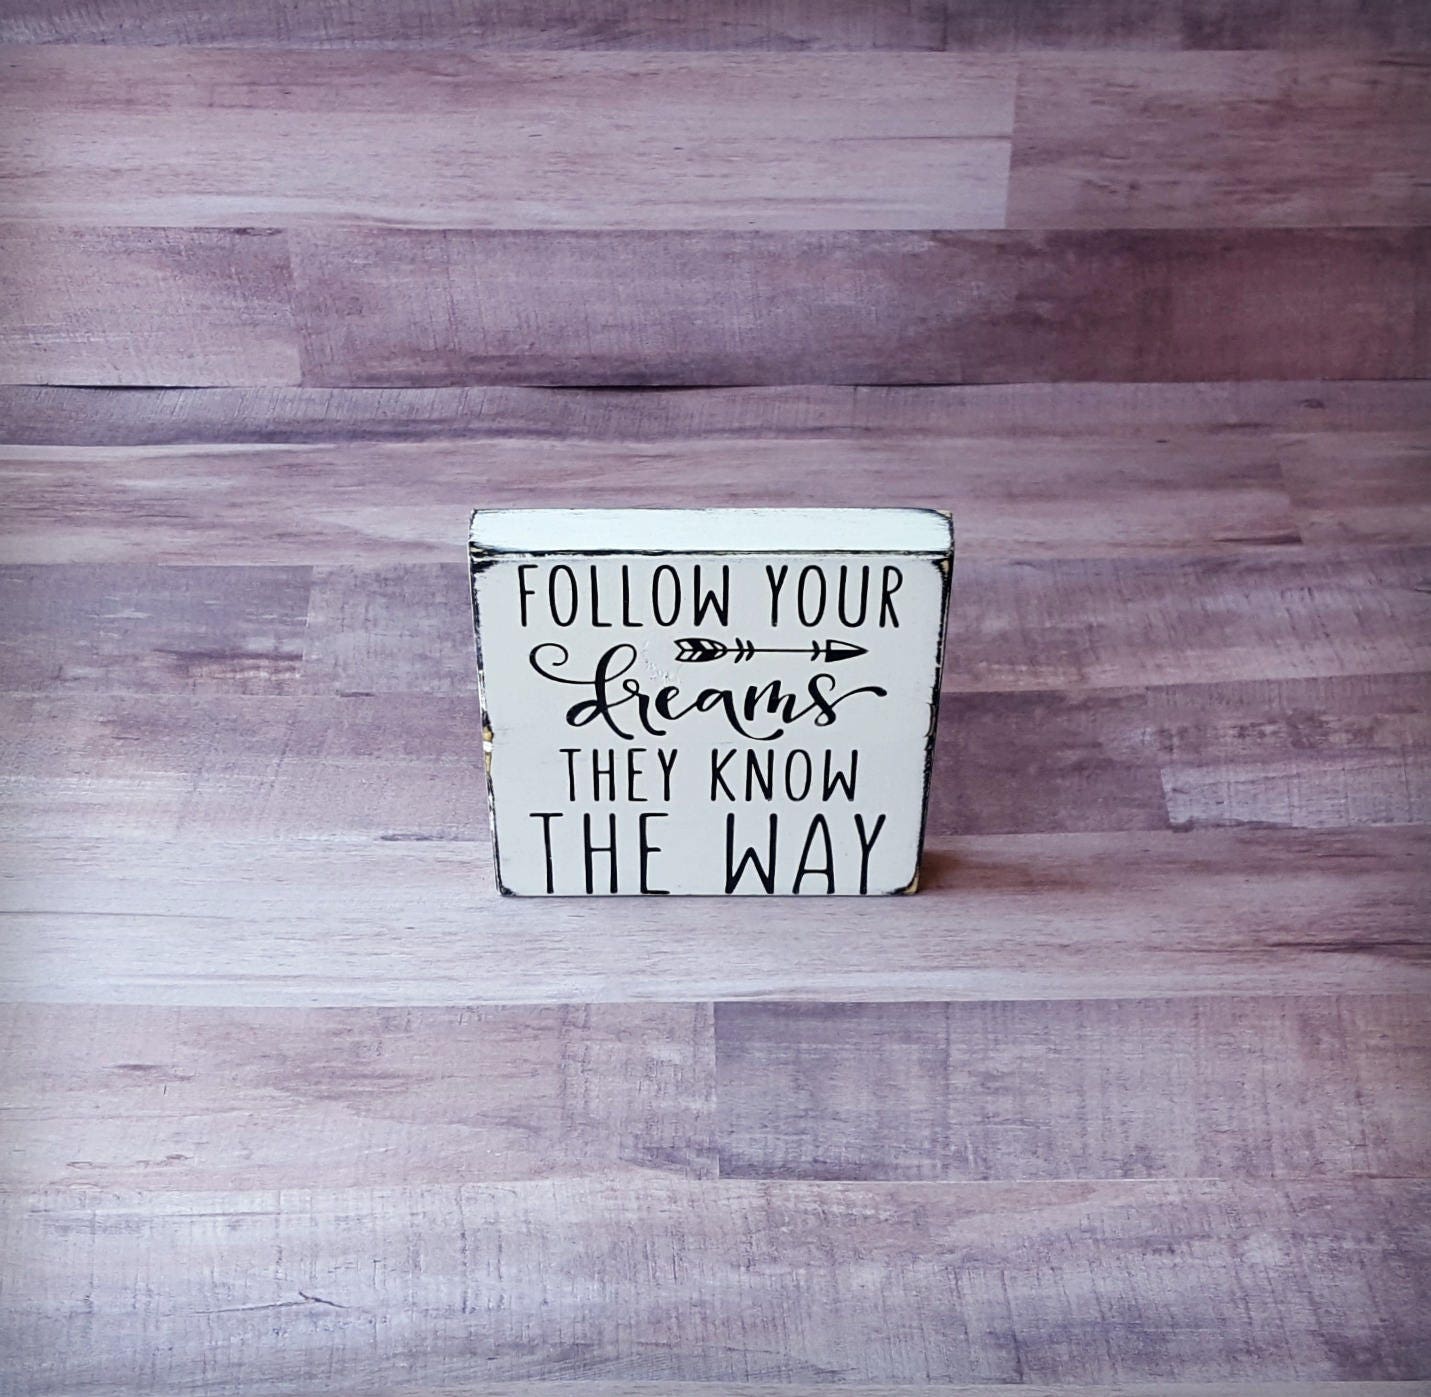 FOLLOW YOUR
dreams
THEY KNOW
THE WAY